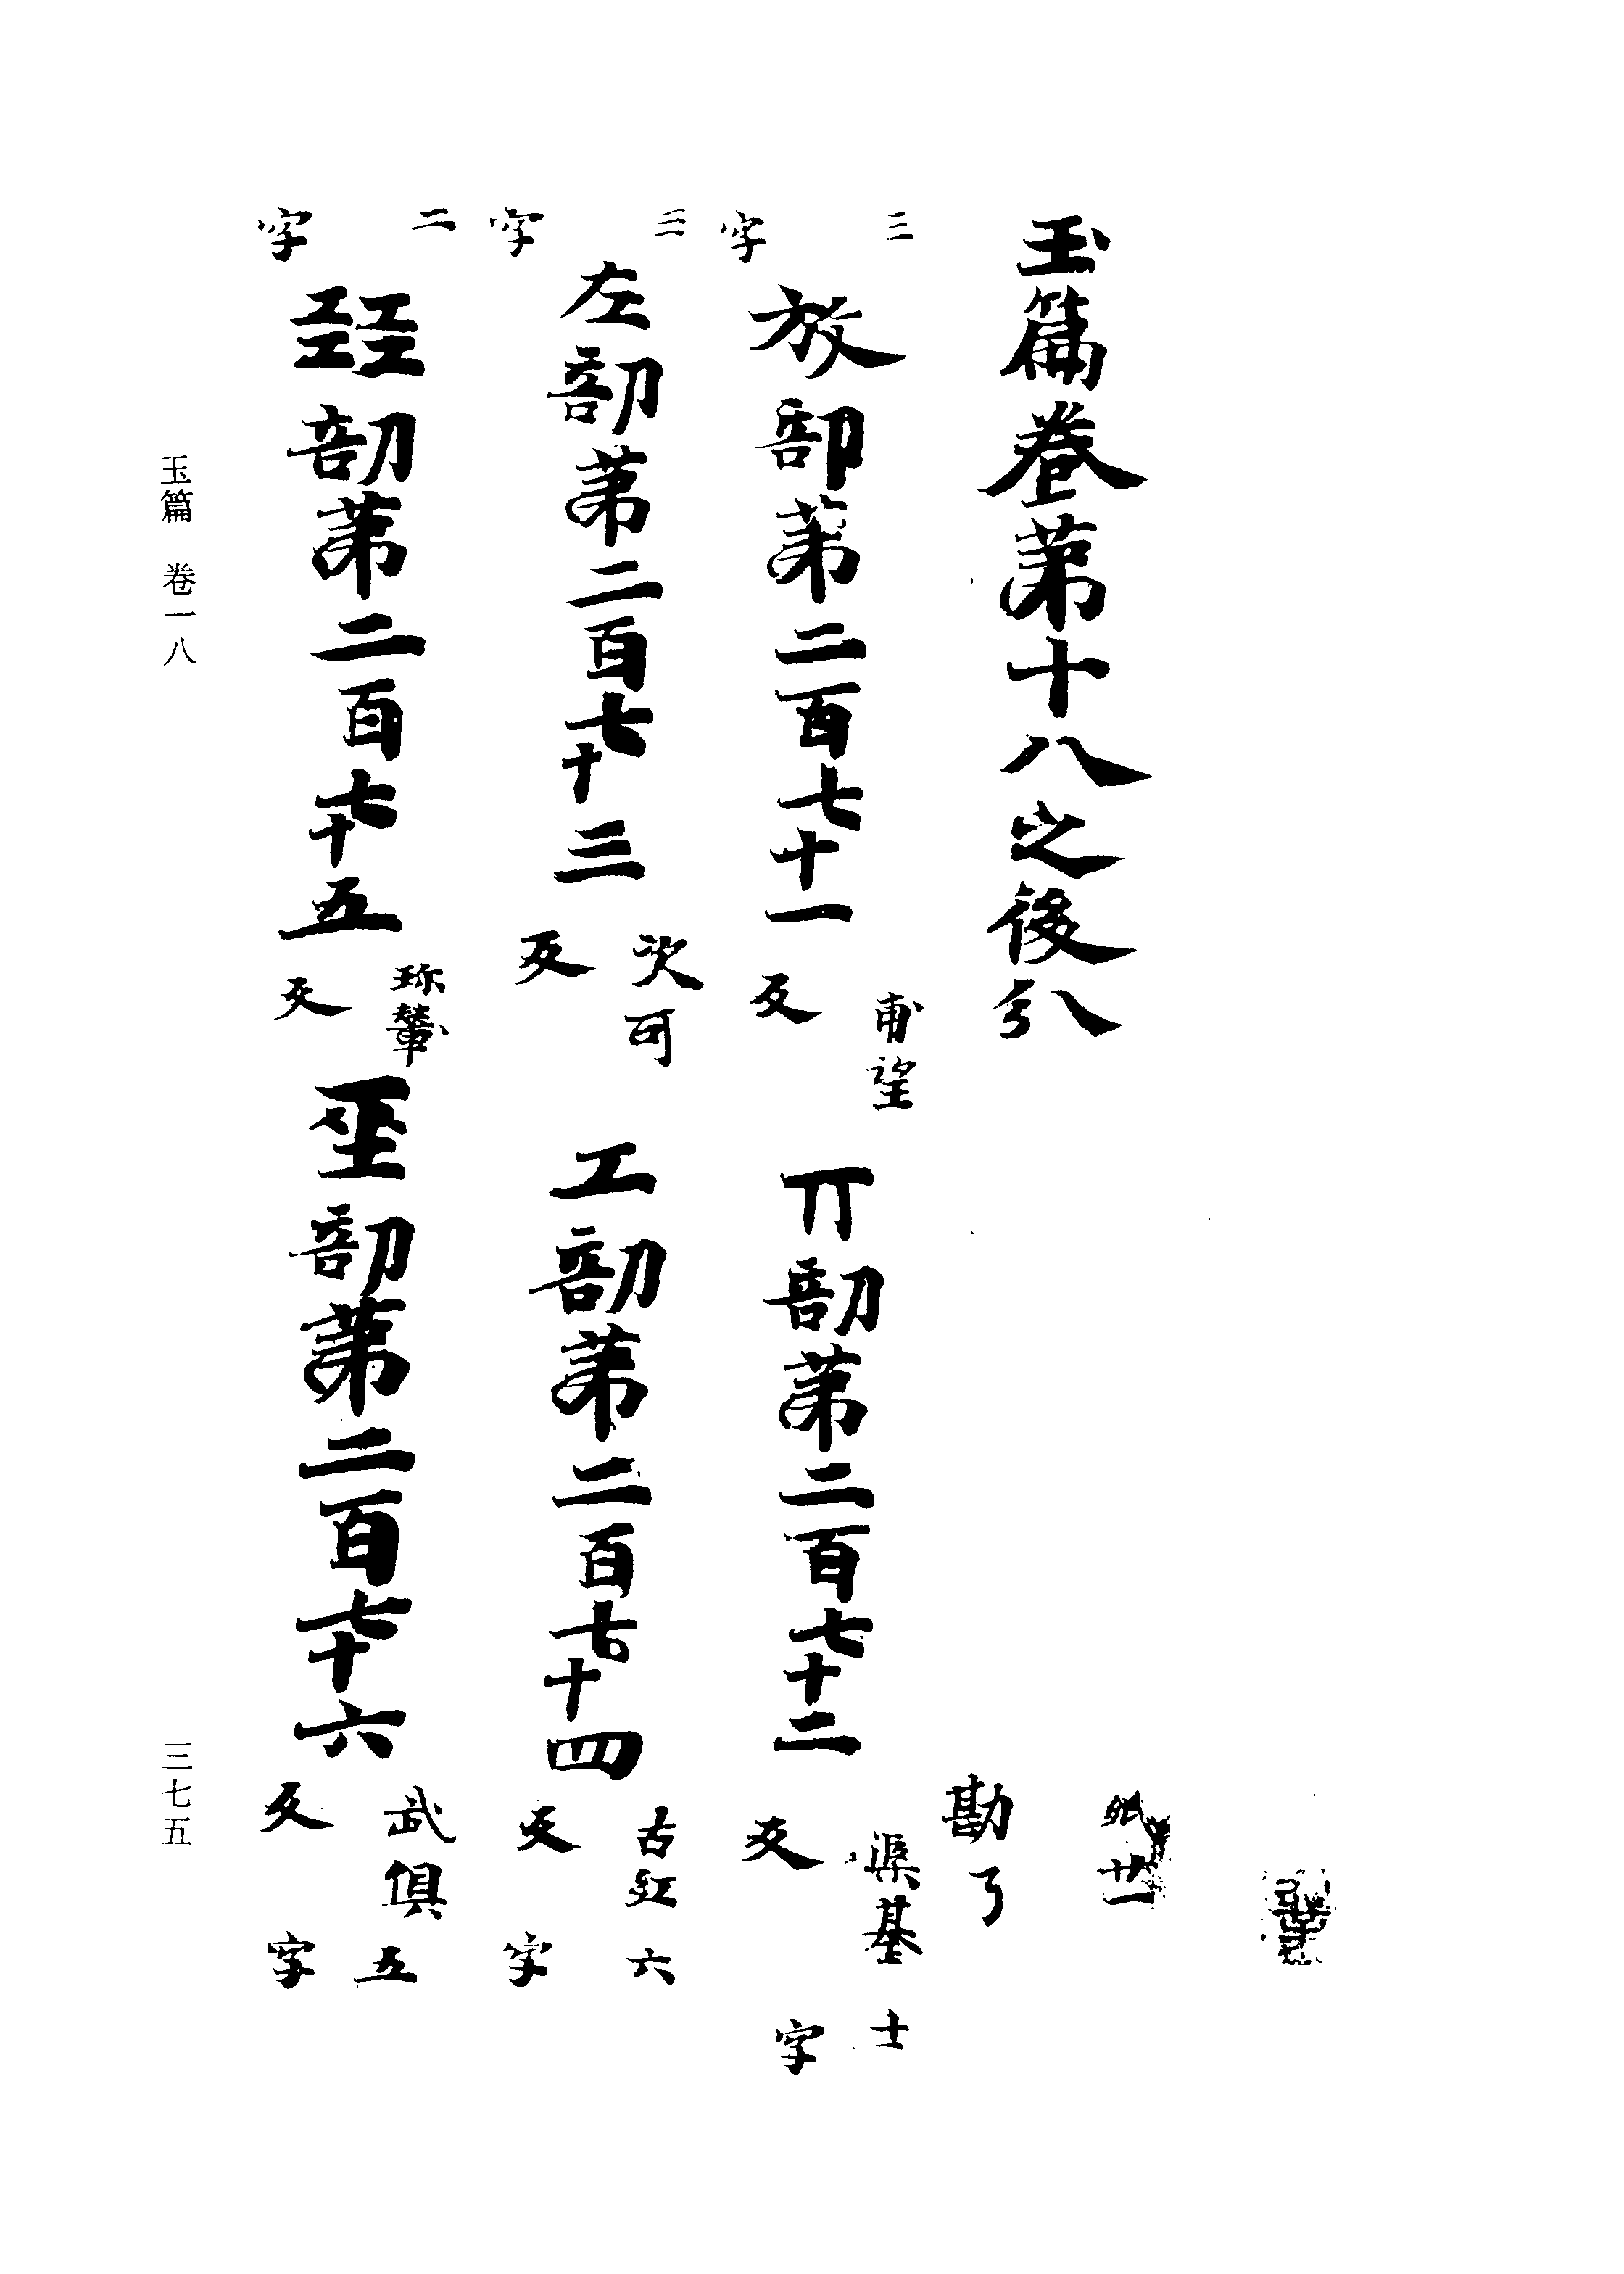 玉篇卷第十八之後
紙廿一
勘了
三字 放部第二百七十一 甫望反 丌部第二百七十二 渠基反 士字
三字 左部第二百七十三 次可反 工部第二百七十四 古紅反 六字
二字 㠭部第二百七十五 珎輦反 巫部第二百七十六 武俱反 五字
玉篇 卷一八
三七五